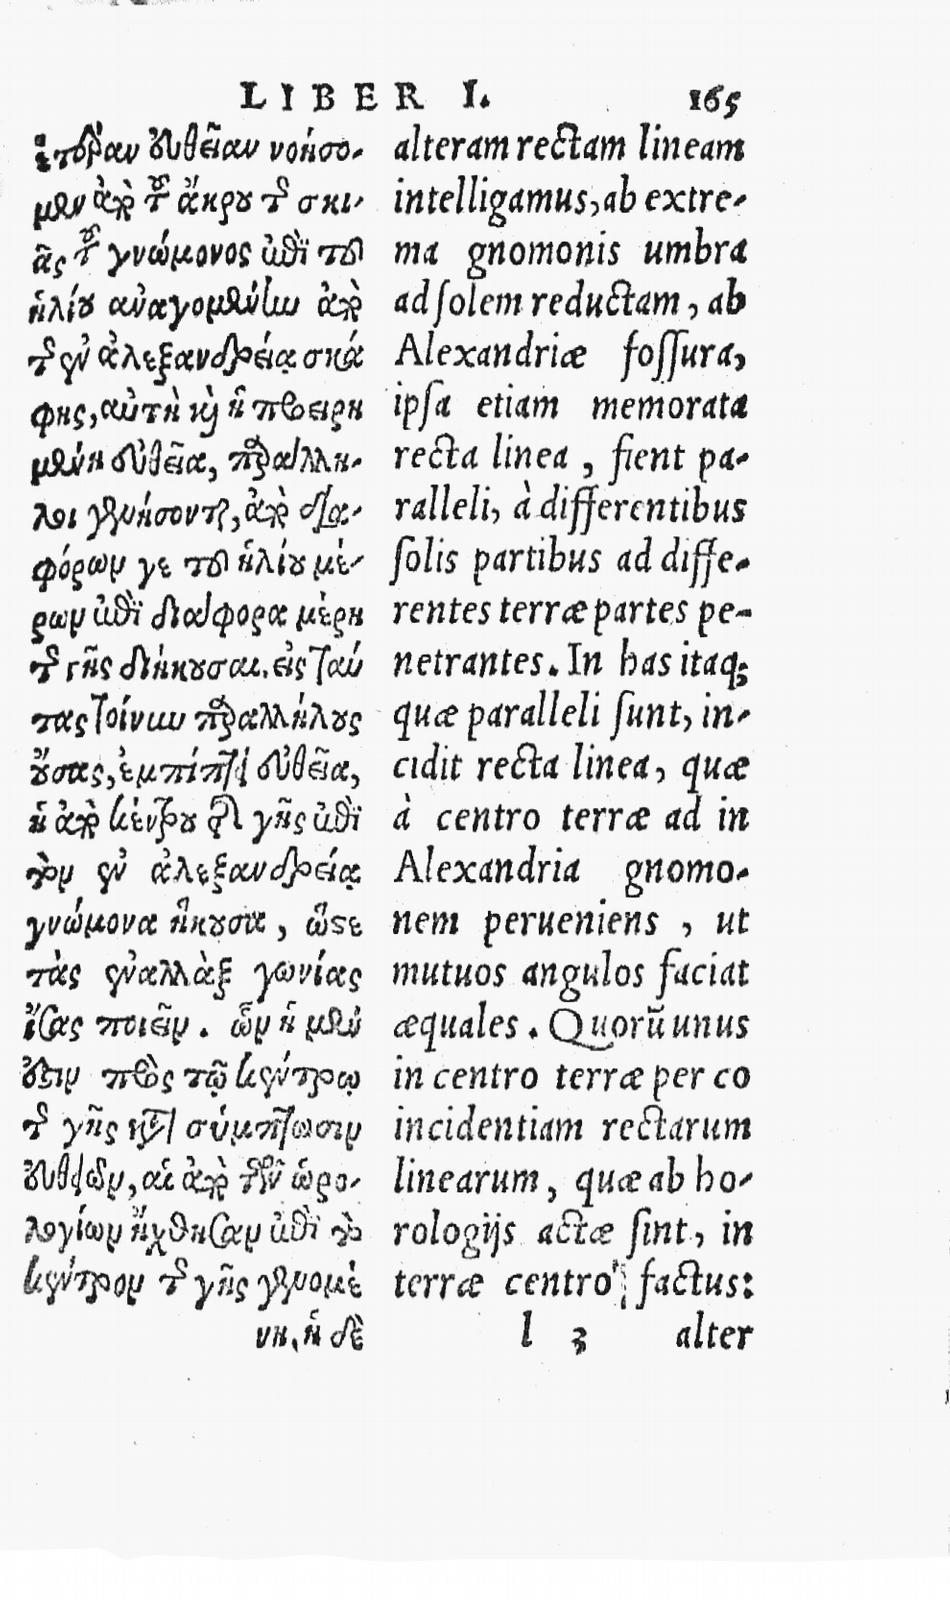 LIBER I. 165
ἑτέραν εὐθεῖαν νοήσο-
μεν ἀπὸ τοῦ ἄκρου τῆς σκι-
ᾶς τοῦ γνώμονος ἐπὶ τοῦ
ἡλίου ἀναγομένην ἀπὸ
τῆς ἐν ἀλεξανδρείᾳ σκά
φης, αὐτὴ καὶ ἡ προειρη
μένη εὐθεῖα, παράλλη-
λοι γενήσονται, ἀπὸ δια-
φόρων γε τοῦ ἡλίου μέ-
ρων ἐπὶ διάφορα μέρη
τῆς γῆς διήκουσαι. εἰς ταύ
τας τοίνυν παραλλήλους
οὔσας, ἐμπίπτει εὐθεῖα,
ἡ ἀπὸ κέντρου τῆς γῆς ἐπὶ
τὸν ἐν ἀλεξανδρείᾳ
γνώμονα ἥκουσα, ὥστε
τὰς ἐναλλὰξ γωνίας
ἴσας ποιεῖν. ὧν ἡ μέν
ἐστιν πρὸς τῷ κέντρῳ
τῆς γῆς κατὰ σύμπτωσιν
εὐθειῶν, αἱ ἀπὸ τῶν ὡρο-
λογίων ἤχθησαν ἐπὶ τὸ
κέντρον τῆς γῆς γενομέ
νη, ἡ δὲ
alteram rectam lineam
intelligamus, ab extre-
ma gnomonis umbra
ad solem reductam, ab
Alexandriæ fossura,
ipsa etiam memorata
recta linea, fient pa-
ralleli, à differentibus
solis partibus ad diffe-
rentes terræ partes pe-
netrantes. In has itaq;
quæ paralleli sunt, in-
cidit recta linea, quæ
à centro terræ ad in
Alexandria gnomo-
nem perueniens, ut
mutuos angulos faciat
æquales. Quorũ unus
in centro terræ per co
incidentiam rectarum
linearum, quæ ab ho-
rologijs actæ sint, in
terræ centro factus:
l 3 alter